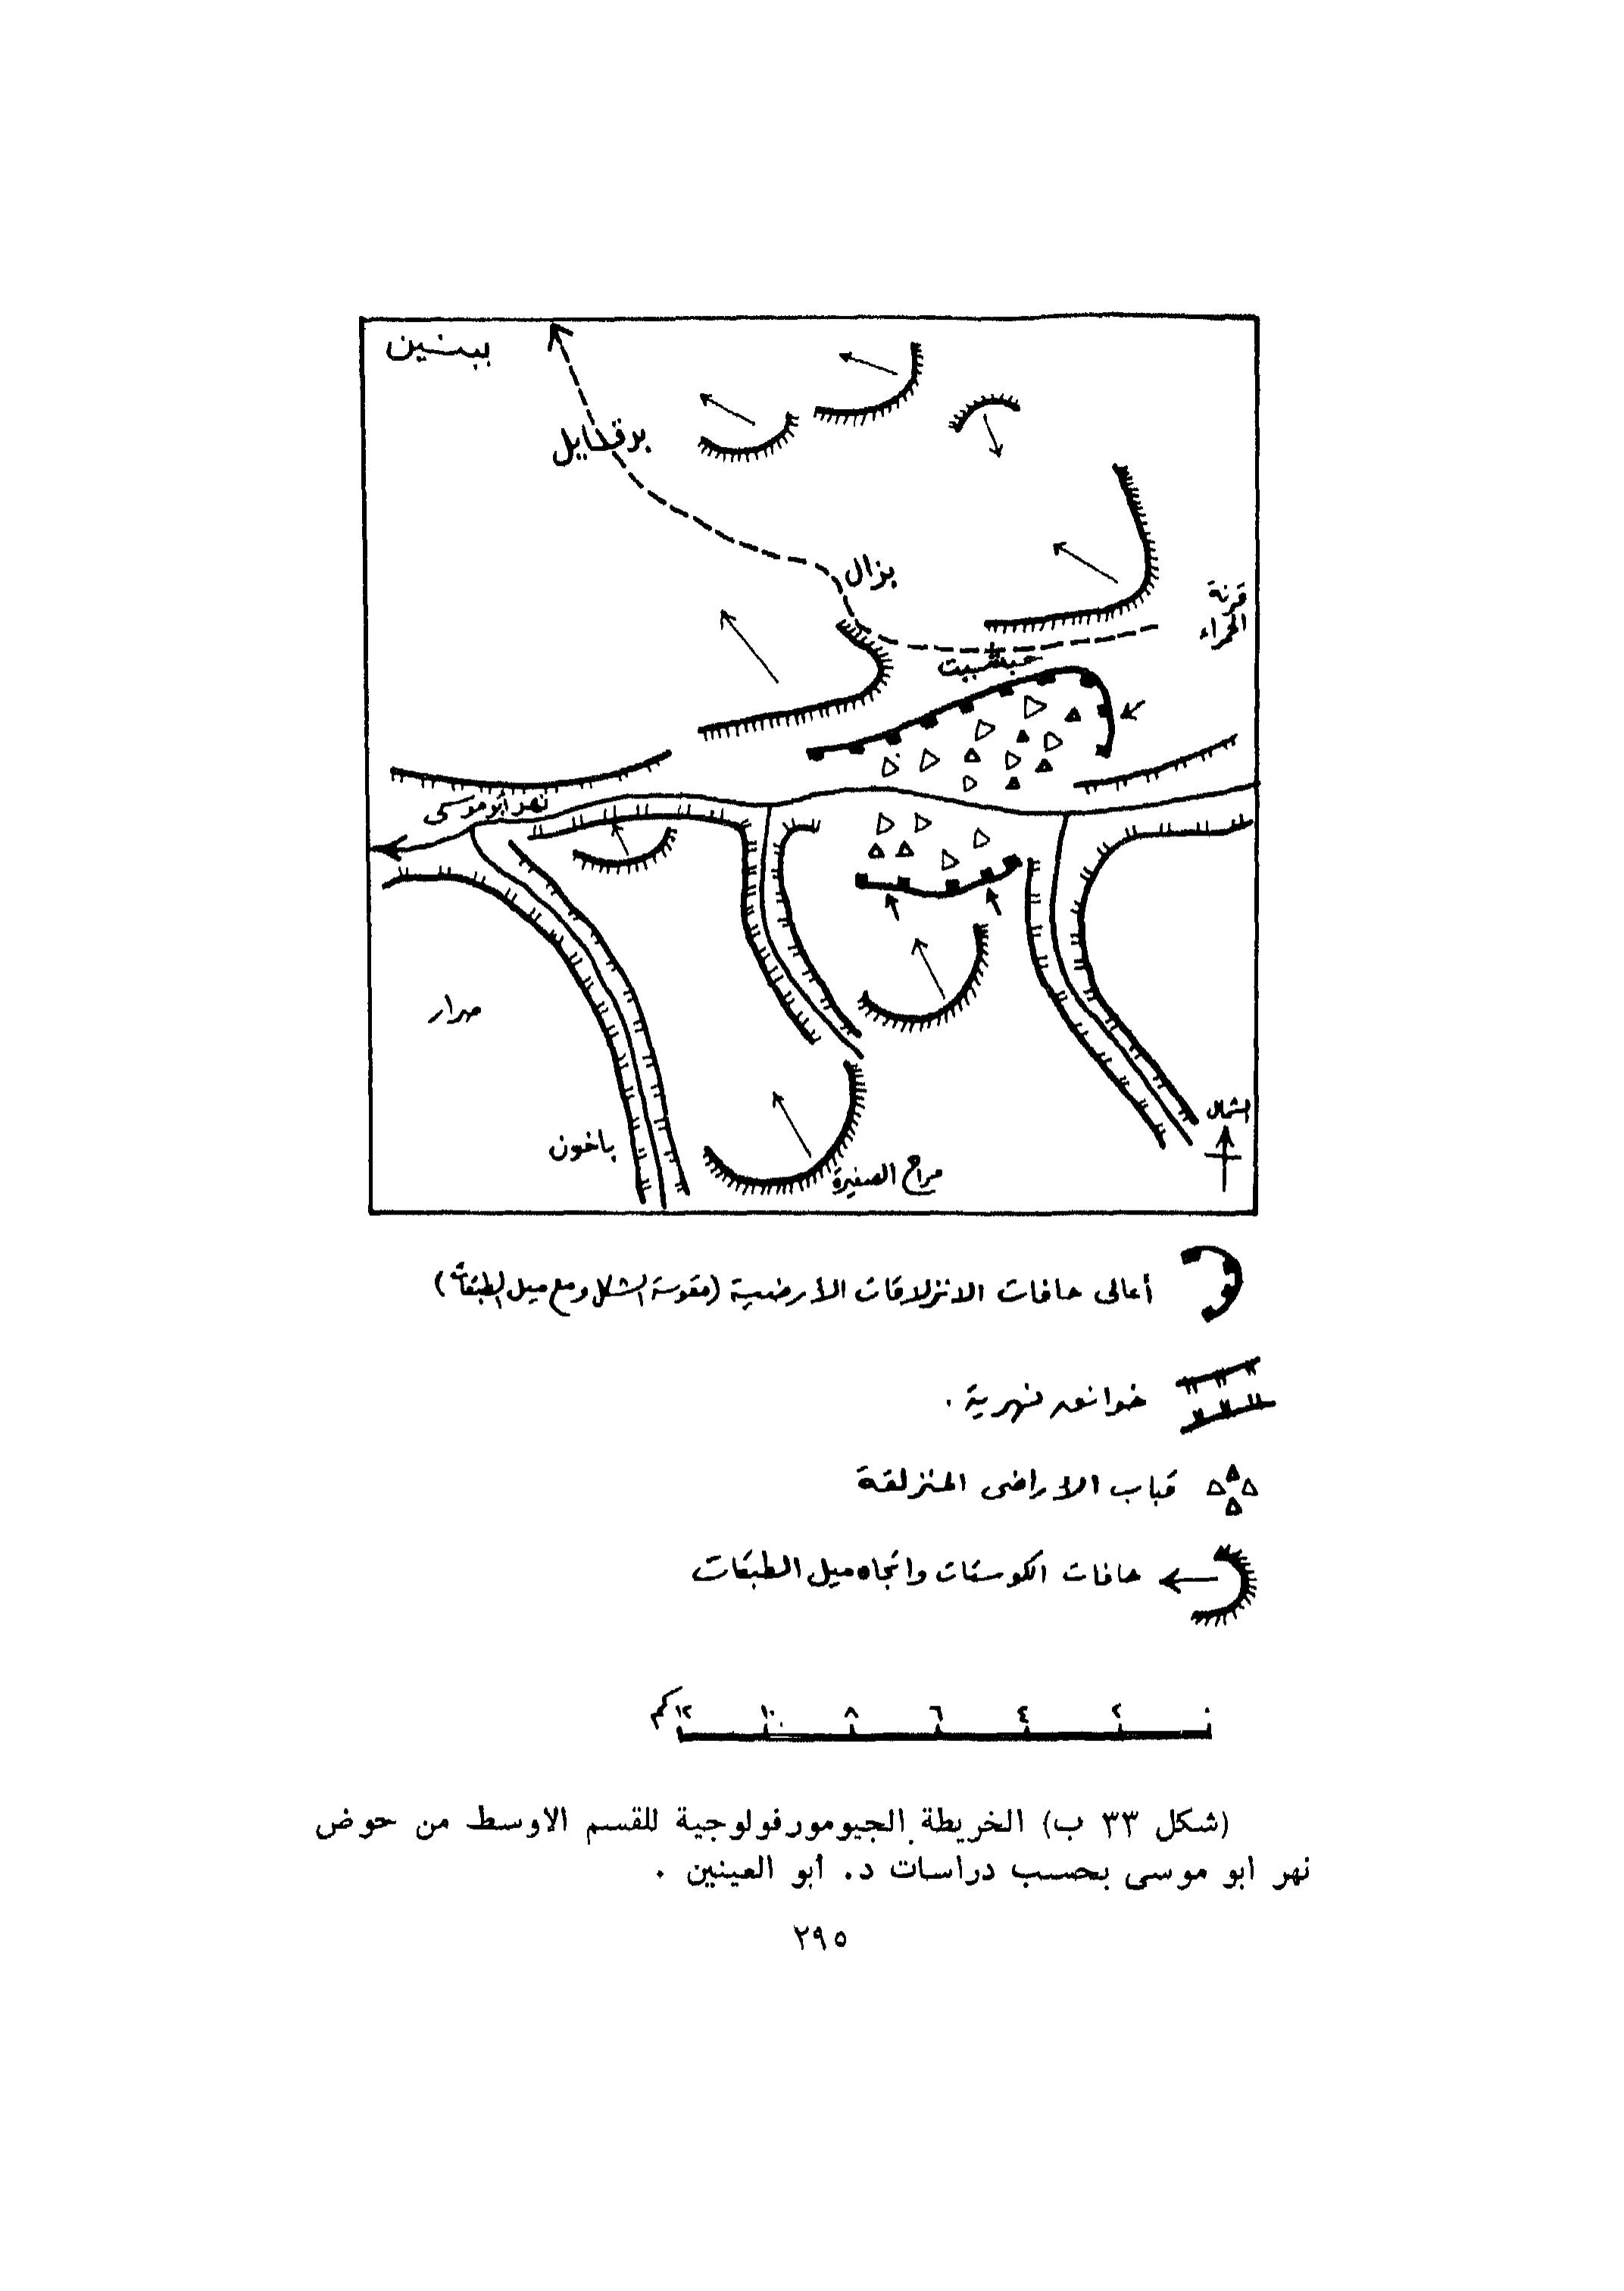 ببنين
برقايل
بزال
قرنة
الحمراء
حبشيت
نهر أبو موسى
مرار
باخون
مراح الصغيرة
الشمال
أعالى حافات الانزلاقات الأرضية (مقوسة الشكل ومع ميل الطبقات)
خوانق نهرية .
قباب الأراضى المنزلقة
حافات الكوستات واتجاه ميل الطبقات
٠ ٢ ٤ ٦ ٨ ١٠ ١٢ كم
(شكل ٣٣ ب) الخريطة الجيومورفولوجية للقسم الاوسط من حوض
نهر ابو موسى بحسب دراسات د. أبو العينين .
٢٩٥